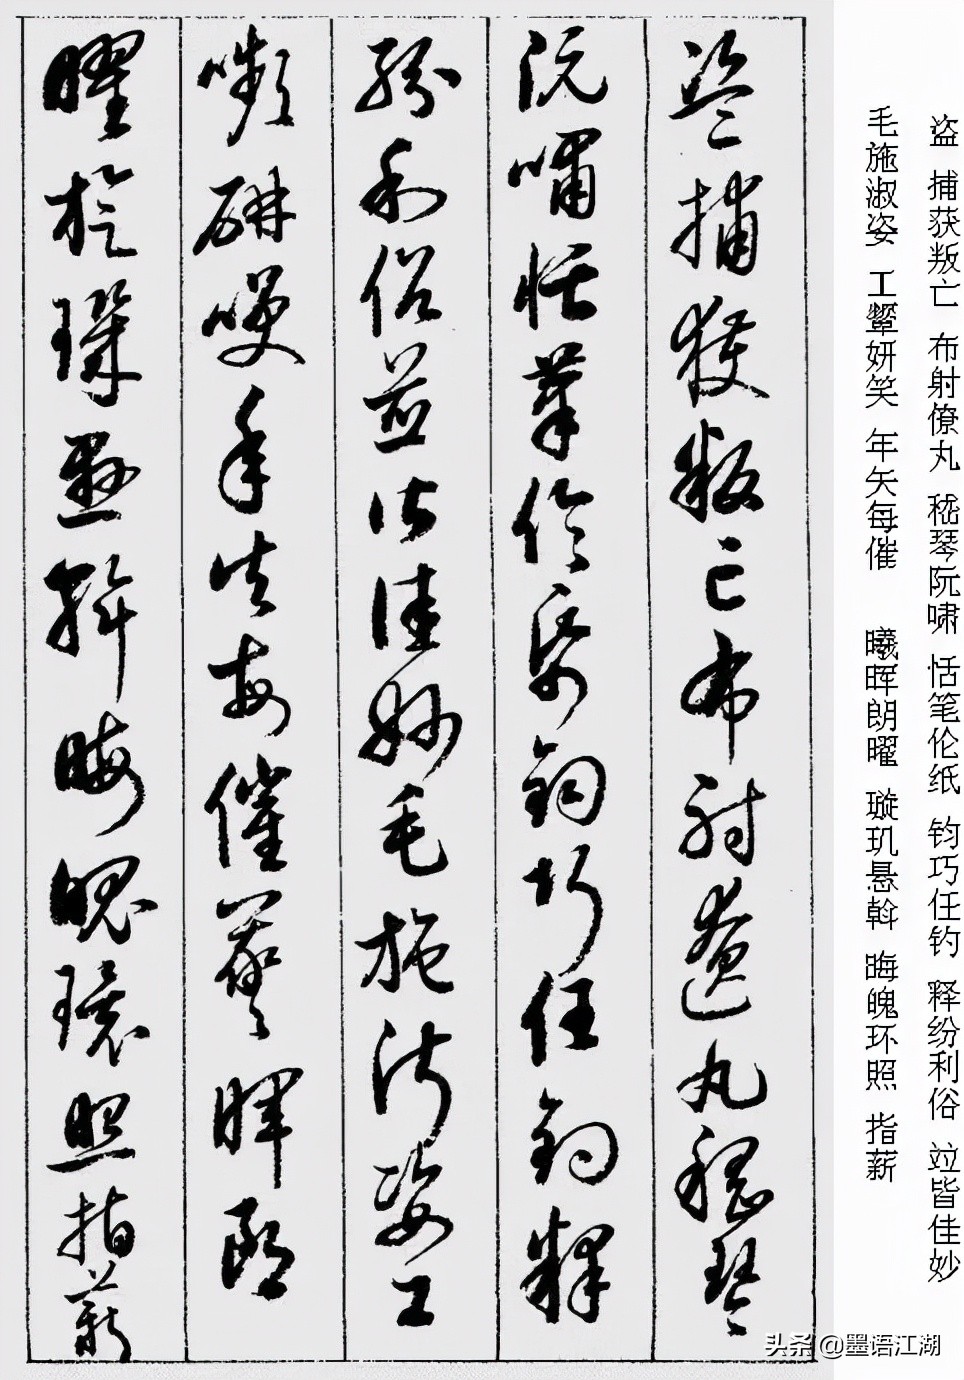 盗 捕获叛亡 布射僚丸 嵇琴阮啸 恬笔伦纸 钧巧任钓 释纷利俗 竝皆佳妙
毛施淑姿 工颦妍笑 年矢每催 曦晖朗曜 璇玑悬斡 晦魄环照 指薪
盗捕獲叛亡布射遼丸嵇琴
阮嘯恬筆倫紙鈞巧任釣釋
紛利俗並皆佳妙毛施淑姿工
嚬研咲年矢每催羲暉朗
曜旋璣懸斡晦魄環照指薪
头条 @墨语江湖